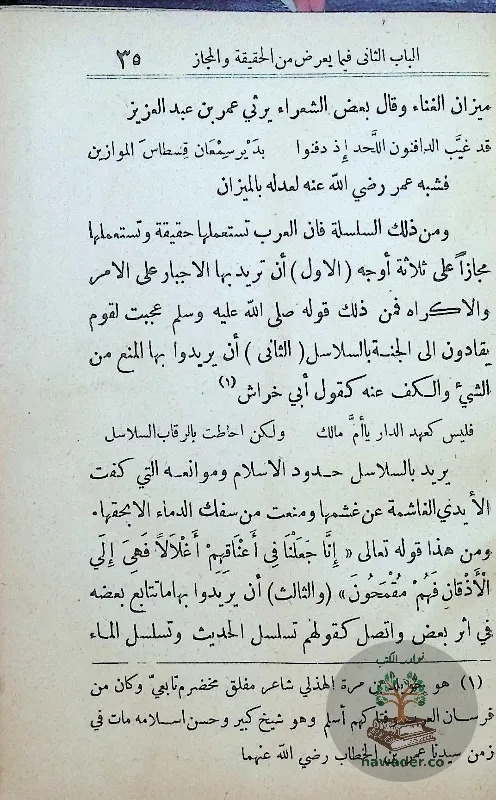 الباب الثانى فيما يعرض من الحقيقة والمجاز ٣٥
ميزان الغناء وقال بعض الشعراء يرثي عمر بن عبد العزيز
قد غيَّب الدافنون اللَّحد إذ دفنوا بدَيْر سِمْعَان قِسطاسَ الموازين
فشبه عمر رضي الله عنه لعدله بالميزان
ومن ذلك السلسلة فان العرب تستعملها حقيقة وتستعملها
مجازاً على ثلاثة أوجه (الاول) أن تريد بها الاجبار على الامر
والاكراه فمن ذلك قوله صلى الله عليه وسلم عجبت لقوم
يقادون الى الجنة بالسلاسل (الثانى) أن يريدوا بها المنع من
الشيء والكف عنه كقول أبي خراش (١)
فليس كعهد الدار ياأمَّ مالك ولكن احاطت بالرقاب السلاسل
يريد بالسلاسل حدود الاسلام وموانعه التي كفت
الأيدي الغاشمة عن غشمها ومنعت من سفك الدماء الابحقها.
ومن هذا قوله تعالى « إِنَّا جَعَلْنَا فِي أَعْنَاقِهِمْ أَغْلَالاً فَهِىَ إِلَي
الْأَذْقَانِ فَهُمْ مُقْمَحُونَ » (والثالث) أن يريدوا بها ماتتابع بعضه
في أثر بعض واتصل كقولهم تسلسل الحديث وتسلسل الماء
(١) هو بن مرة الهذلي شاعر مفلق مخضرم تابعيّ وكان من
فرسان العرب وفتاكهم أسلم وهو شيخ كبير وحسن اسلامه مات في
زمن سيدنا عمر بن الخطاب رضي الله عنهما
نوادر الكتب
nawader.co